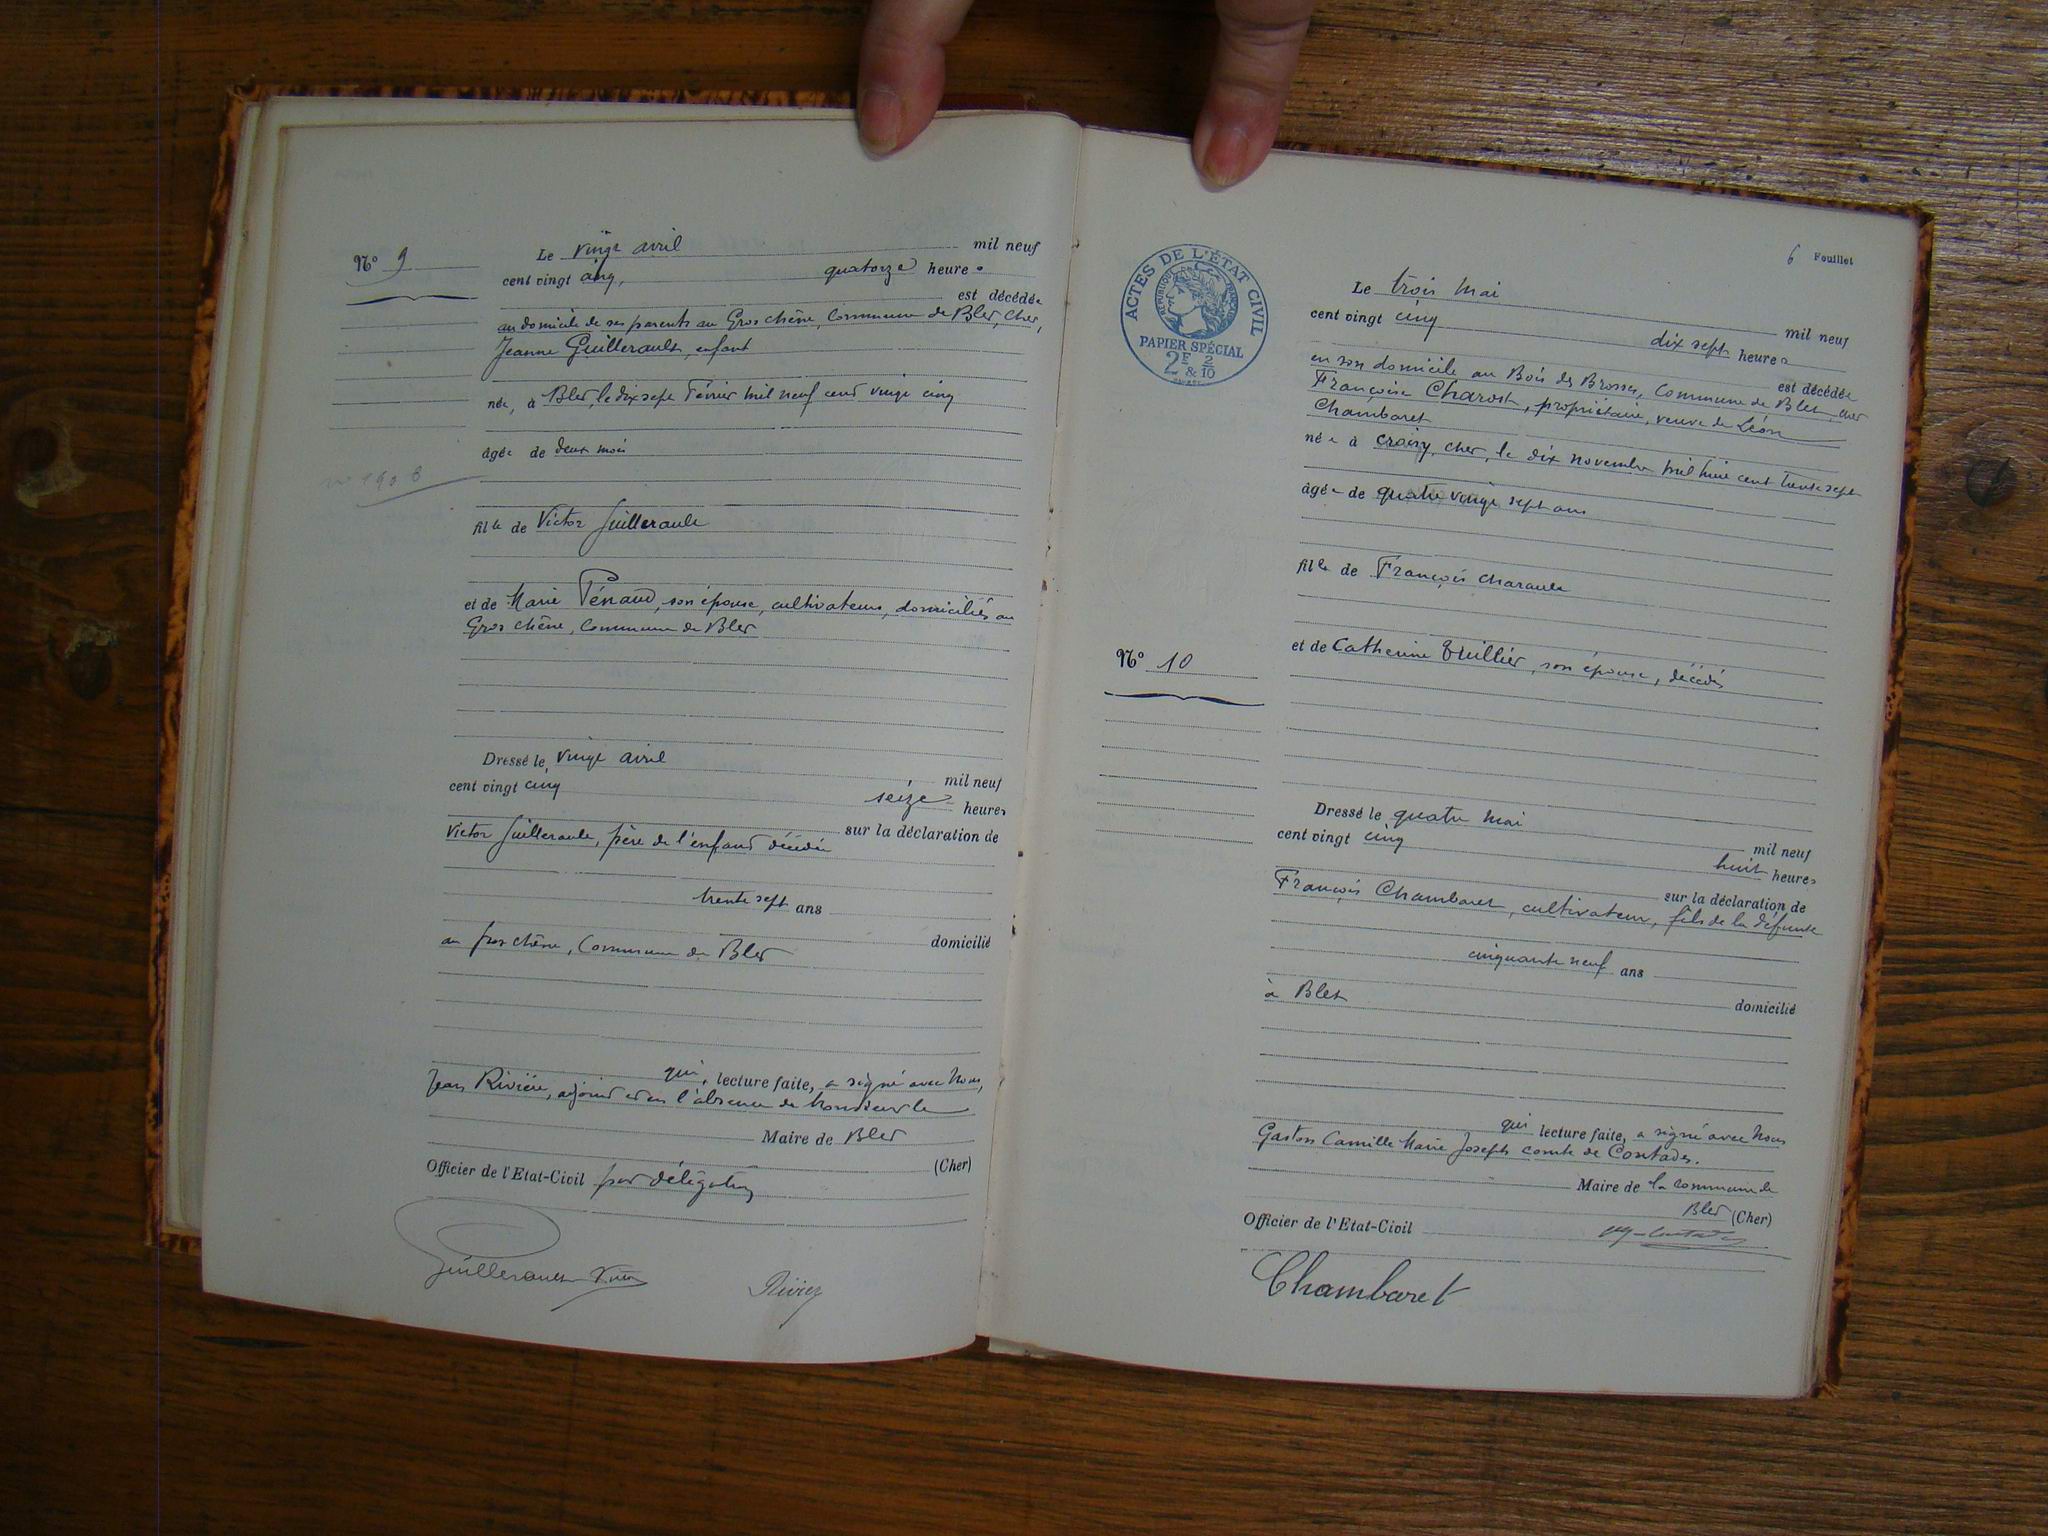 Nº 9
Le vingt avril mil neuf
cent vingt cinq, quatorze heures
est décédée
au domicile de ses parents au Gros chêne, Commune de Blet, Cher,
Jeanne Guillerault, enfant
née, à Blet, le dix sept Février mil neuf cent vingt cinq
âgée de deux mois
fille de Victor Guillerault
et de Marie Pénaud, son épouse, cultivateurs, domiciliés au
Gros chêne, Commune de Blet
Dressé le vingt avril mil neuf
cent vingt cinq seize heures
sur la déclaration de
Victor Guillerault, père de l'enfant décédée
trente sept ans
domicilié
au Gros chêne, Commune de Blet
qui, lecture faite, a signé avec Nous,
Jean Rivière, adjoint et en l'absence de Monsieur le
Maire de Blet
(Cher)
Officier de l'Etat-Civil par délégation
Guillerault Victor
6 Feuillet
ACTES DE L'ÉTAT CIVIL
RÉPUBLIQUE FRANÇAISE
PAPIER SPÉCIAL
2F & 2/10
Nº 10
Le trois Mai mil neuf
cent vingt cinq dix sept heures
est décédée
en son domicile au Bois des Brosses, Commune de Blet, cher
Françoise Charost, propriétaire, veuve de Léon
Chambaret
née à Croisy, cher, le dix novembre mil huit cent trente sept
âgée de quatre vingt sept ans
fille de François Charault
et de Catherine Thuillier, son épouse, décédés
Dressé le quatre Mai mil neuf
cent vingt cinq huit heures
sur la déclaration de
François Chambaret, cultivateur, fils de la défunte
cinquante neuf ans
domicilié
à Blet
qui lecture faite, a signé avec Nous
Gaston Camille Marie Joseph comte de Contades.
Maire de la commune de
Blet (Cher)
Officier de l'Etat-Civil
Chambaret